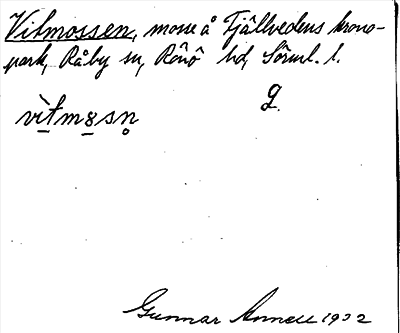 Vitmossen, mosse å Tjällvedens krono-
park, Råby sn, Rönö hd, Sörml. l.
vìtmȯsn̥ g.
Gunnar Annell 1932